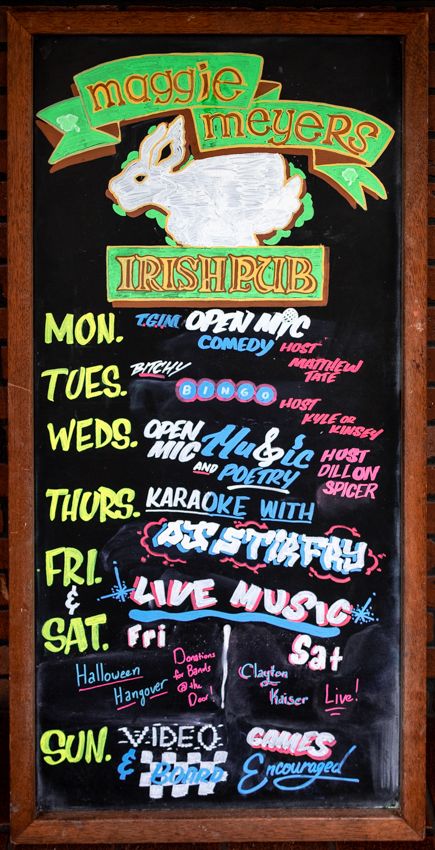 maggie
meyers
IRISH PUB
MON. T.G.I.M OPEN MIC
COMEDY HOST
MATTHEW
TATE
TUES. BITCHY
BINGO HOST
KYLE OR
KINSEY
WEDS. OPEN
MIC Music
AND POETRY
HOST
DILLON
SPICER
THURS. KARAOKE WITH
DJ STIRFRY
FRI.
&
SAT.
LIVE MUSIC
Fri
Halloween
Hangover
Donations
for Bands
@ the
Door!
Sat
Clayton
Kaiser Live!
SUN. VIDEO GAMES
& BOARD Encouraged